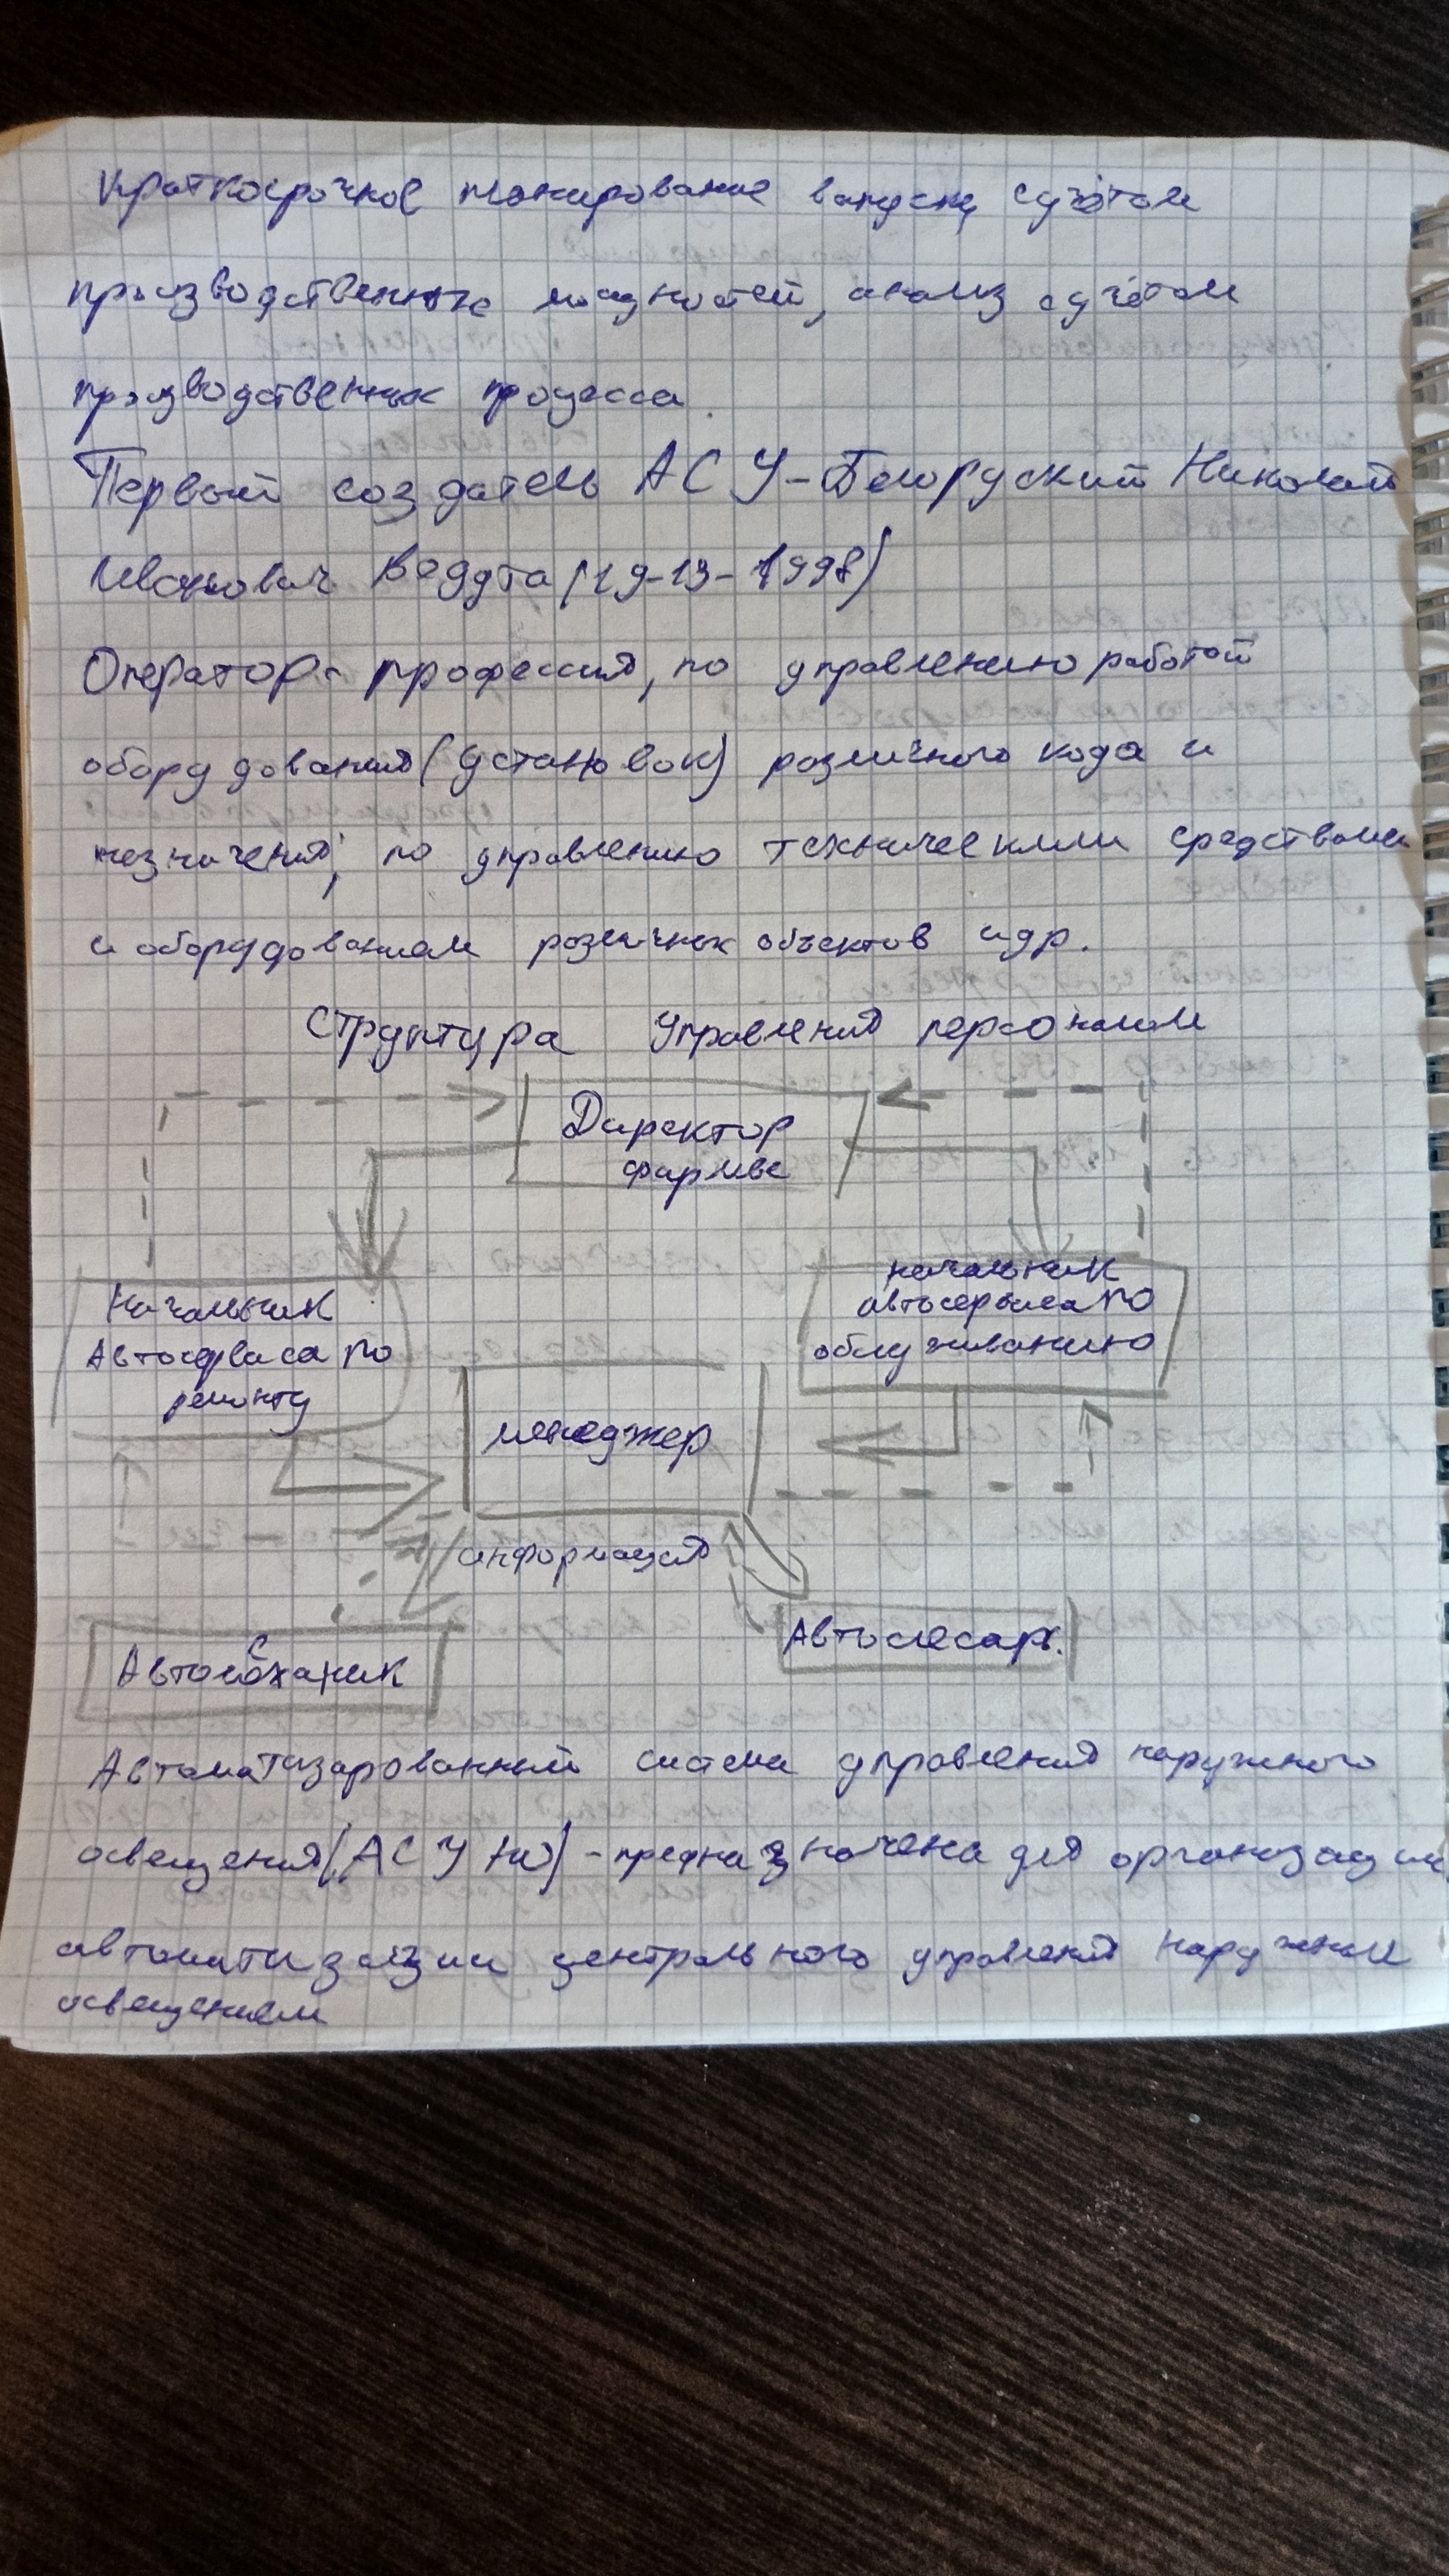 Краткосрочное планирование выпуску с учётом
производственных мощностей, анализ с учётом
производственных процесса.
Первый создатель АСУ - Белоруский Николай
Иванович Ведута (19-13-1998)
Оператор - профессия, по управлению работой
оборудования (установок) различного кода и
незначения; по управлению техническими средствами
и оборудованием различных объектов и др.
Структура Управления персоналом
Директор
фирмы
Начальник
Автосервиса по
ремонту
начальник
автосервиса по
облуживанию
менеджер
информация
Автомеханик
Автослесарь.
Автоматизированный система управления наружного
освещения (АСУ НО) - предназначена для организации
автоматизации центрального управления наружным
освещением